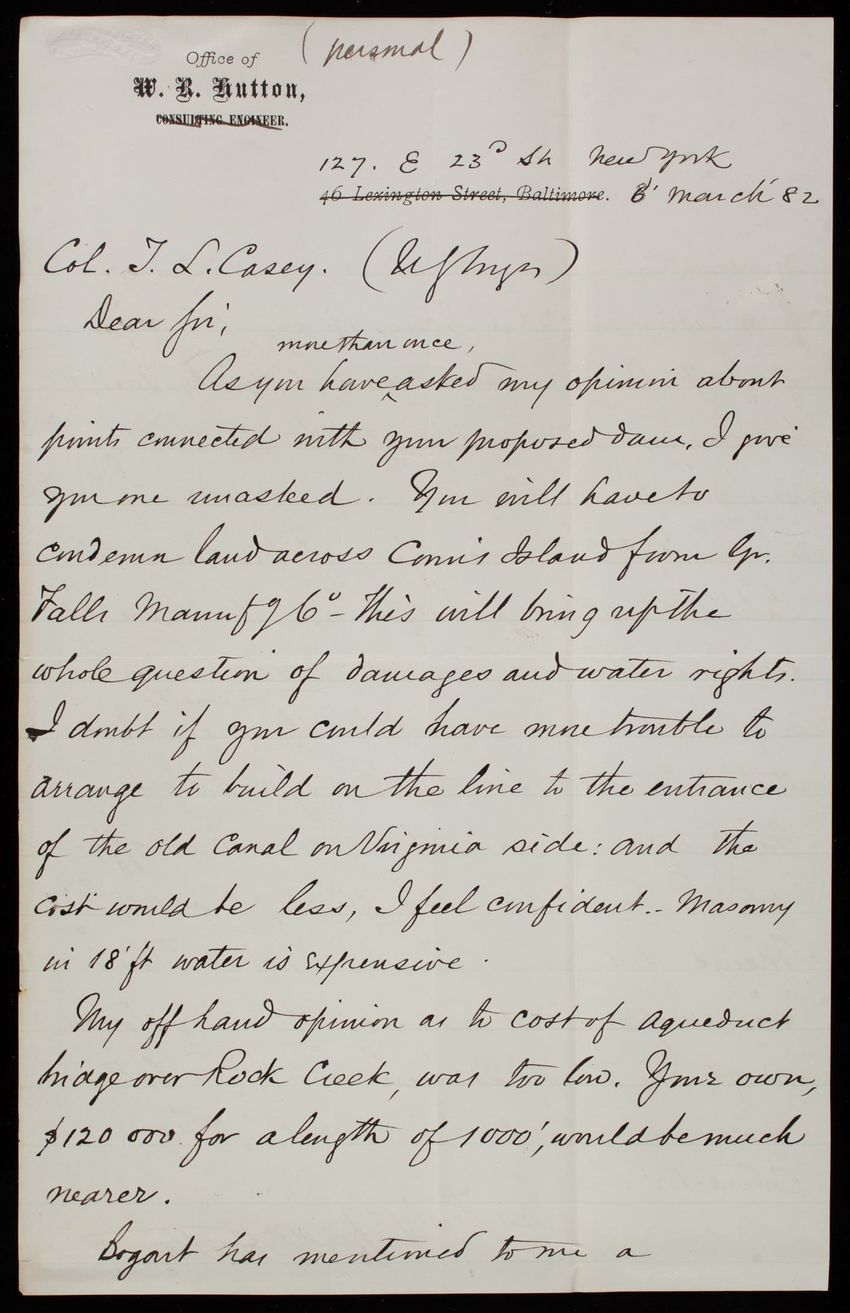 (personal)
Office of
W. R. Hutton,
CONSULTING ENGINEER.
127. E 23d St. New York
46 Lexington Street, Baltimore. 8' March 82
Col. T. L. Casey. (
Dear Sir;
more than once,
As you have asked my opinion about
points connected with your proposed dam, I give
you one unasked. You will have to
condemn land across Conn's Island from Gr.
Falls Manufg Co - This will bring up the
whole question of damages and water rights.
I doubt if you could have more trouble to
arrange to build on the line to the entrance
of the old Canal on Virginia side: and the
cost would be less, I feel confident.- Masonry
in 18 ft water is expensive.
My off hand opinion as to cost of aqueduct
bridge over Rock Creek, was too low. Your own,
$120 000 for a length of 1000', would be much
nearer.
Bogart has mentioned to me a